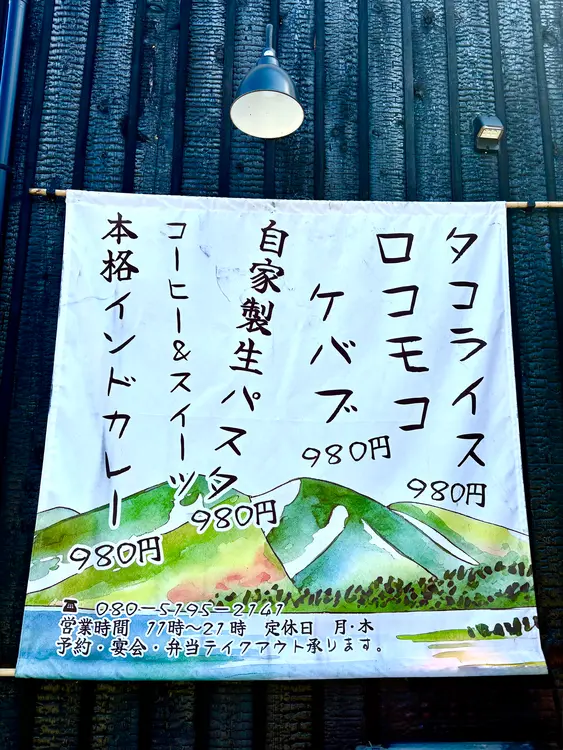 タコライス
980円
ロコモコ
ケバブ
980円
自家製生パスタ
980円
コーヒー&スイーツ
本格インドカレー
980円
☎ 080-5195-2141
営業時間 11時〜21時 定休日 月・木
予約・宴会・弁当テイクアウト承ります。